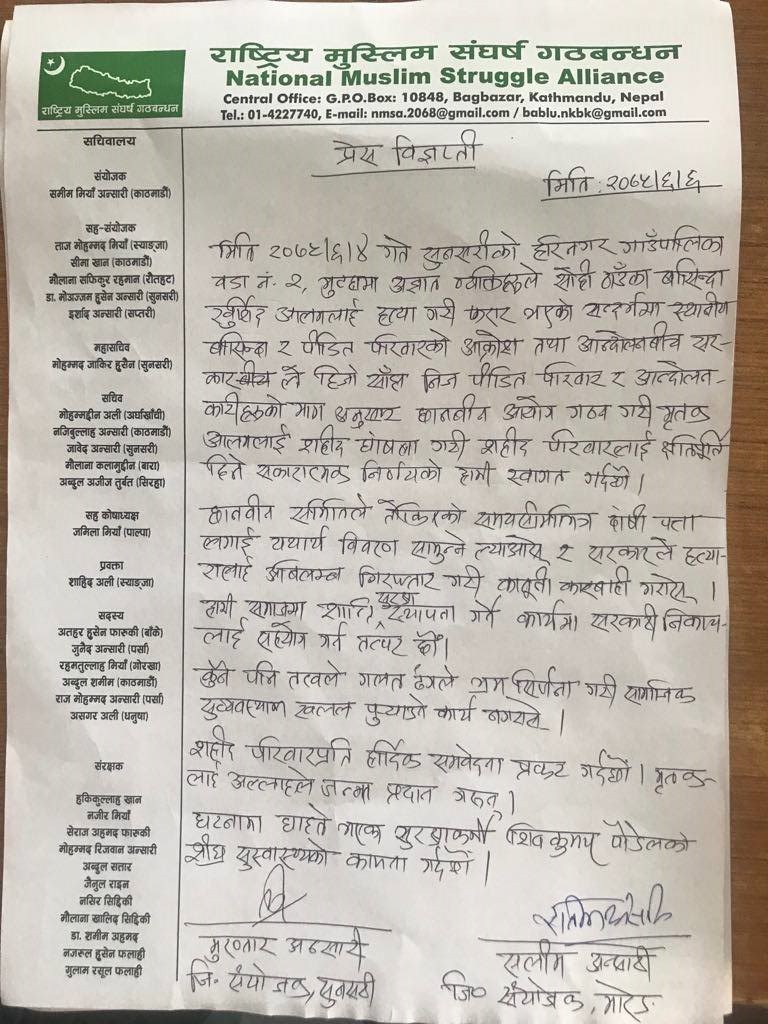 राष्ट्रिय मुस्लिम संघर्ष गठबन्धन
National Muslim Struggle Alliance
Central Office: G.P.O.Box: 10848, Bagbazar, Kathmandu, Nepal
Tel.: 01-4227740, E-mail: nmsa.2068@gmail.com / bablu.nkbk@gmail.com
राष्ट्रिय मुस्लिम संघर्ष गठबन्धन
सचिवालय
संयोजक
समीम मियाँ अन्सारी (काठमाडौं)
सह-संयोजक
ताज मोहम्मद मियाँ (स्याङ्जा)
सीमा खान (काठमाडौं)
मौलाना सफिकुर रहमान (रौतहट)
डा. मोअज्जम हुसेन अन्सारी (सुनसरी)
इर्साद अन्सारी (सप्तरी)
महासचिव
मोहम्मद जाकिर हुसैन (सुनसरी)
सचिव
मोहम्मद्दीन अली (अर्घाखाँची)
नजिबुल्लाह अन्सारी (काठमाडौं)
जावेद अन्सारी (सुनसरी)
मौलाना कलामुद्दीन (बारा)
अब्दुल अजीज तुर्बत (सिरहा)
सह कोषाध्यक्ष
जमिला मियाँ (पाल्पा)
प्रवक्ता
शाहिद अली (स्याङ्जा)
सदस्य
अतहर हुसेन फारुकी (बाँके)
जुनैद अन्सारी (पर्सा)
रहमतुल्लाह मियाँ (गोरखा)
अब्दुल शमीम (काठमाडौं)
राज मोहम्मद अन्सारी (पर्सा)
असगर अली (धनुषा)
संरक्षक
हकिकुल्लाह खान
नजीर मियाँ
सेराज अहमद फारुकी
मोहम्मद रिजवान अन्सारी
अब्दुल सतार
जैनुल राइन
नसिर सिद्दिकी
मौलाना खालिद सिद्दिकी
डा. शमीम अहमद
नजरुल हुसेन फलाही
गुलाम रसूल फलाही
प्रेस विज्ञप्ती
मिति : २०७५/६/६
मिति २०७५/६/४ गते सुनसरीको हरिनगर गाउँपालिका
वडा नं. २, गुटहामा अज्ञात व्यक्तिहरुले सोही गाउँका बासिन्दा
खुर्शिद आलमलाई हत्या गरी फरार भएको सन्दर्भमा स्थानीय
बासिन्दा र पीडित परिवारको आक्रोश तथा आन्दोलनबीच सर-
कारबीच ले हिजो साँझ निज पीडित परिवार र आन्दोलन-
कारीहरुको माग अनुसार छानबीन आयोग गठन गरी मृतक
आलमलाई शहीद घोषना गरी शहीद परिवारलाई क्षतिपूर्ति
दिने सकारात्मक निर्णयको हामी स्वागत गर्दछौं।
छानबीन समितिले तोकिएको समयसीमाभित्र दोषी पत्ता
लगाई यथार्थ विवरण सामुन्ने ल्याओस् र सरकारले हत्या-
रालाई अबिलम्ब गिरफ्तार गरी कानूनी कारबाही गरोस्।
हामी समाजमा शान्ति सुरक्षा स्थापना गर्ने कार्यमा सरकारी निकाय-
लाई सहयोग गर्न तत्पर छौं।
कुनै पनि तत्वले गलत ढंगले भ्रम सिर्जना गरी सामाजिक
सुव्यवस्थामा खलल पुर्‍याउने कार्य नगरोस्।
शहीद परिवारप्रति हार्दिक समवेदना प्रकट गर्दछौं। मृतक-
लाई अल्लाहले जन्नत प्रदान गरुन्।
घटनामा घाइते भएका सुरक्षाकर्मी शिवकुमार पौडेलको
शीघ्र सुस्वास्थ्यको कामना गर्दछौं।
मुख्तार अन्सारी
जि. संयोजक, सुनसरी
सलीम अन्सारी
जि० संयोजक, मोरङ